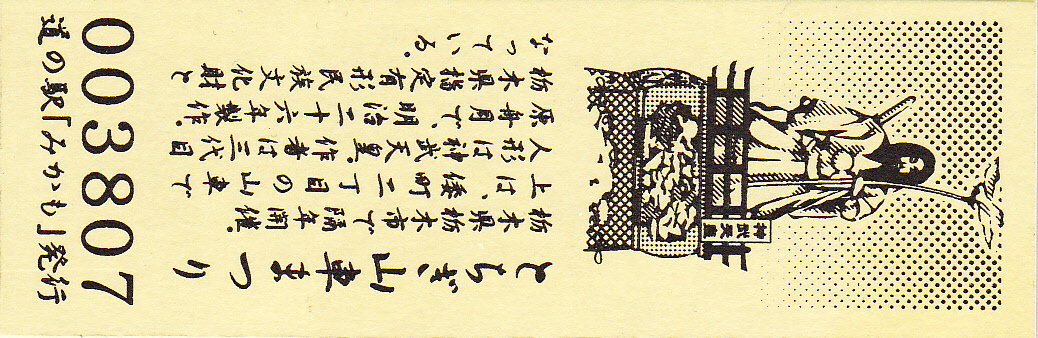 とちぎ山車まつり
栃木県栃木市で隔年開催。
上は、倭町二丁目の山車で
人形は神武天皇。作者は三代目
原舟月で、明治二十六年製作。
栃木県指定有形民族文化財と
なっている。
神武天皇
003807
道の駅「みかも」発行